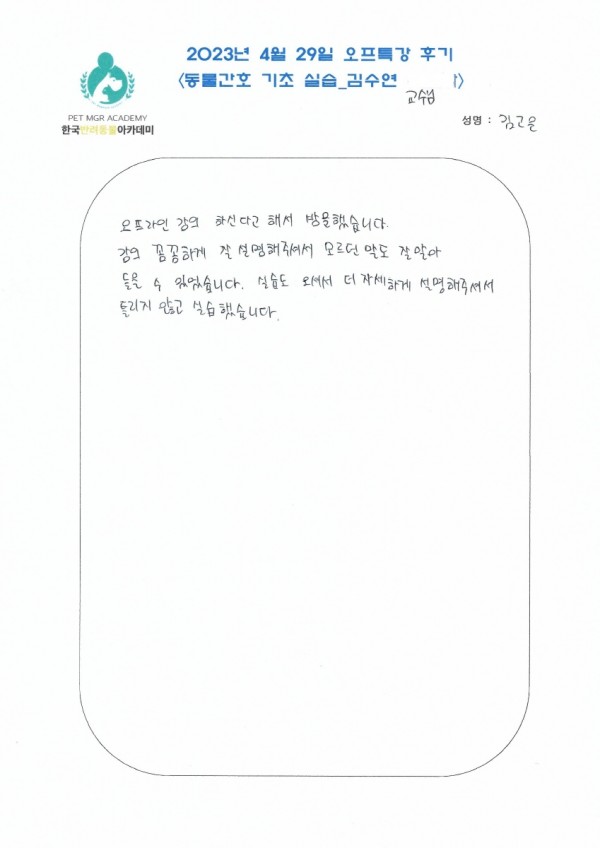 2023년 4월 29일 오프특강 후기
<동물간호 기초 실습_김수연 교수님>
PET MGR ACADEMY
한국반려동물아카데미
성명 : 김고은
오프라인 강의 하신다고 해서 방문했습니다.
강의 꼼꼼하게 잘 설명해주셔서 모르던 말도 잘알아
들을 수 있었습니다. 실습도 오셔서 더 자세하게 설명해주셔서
틀리지 않고 실습했습니다.